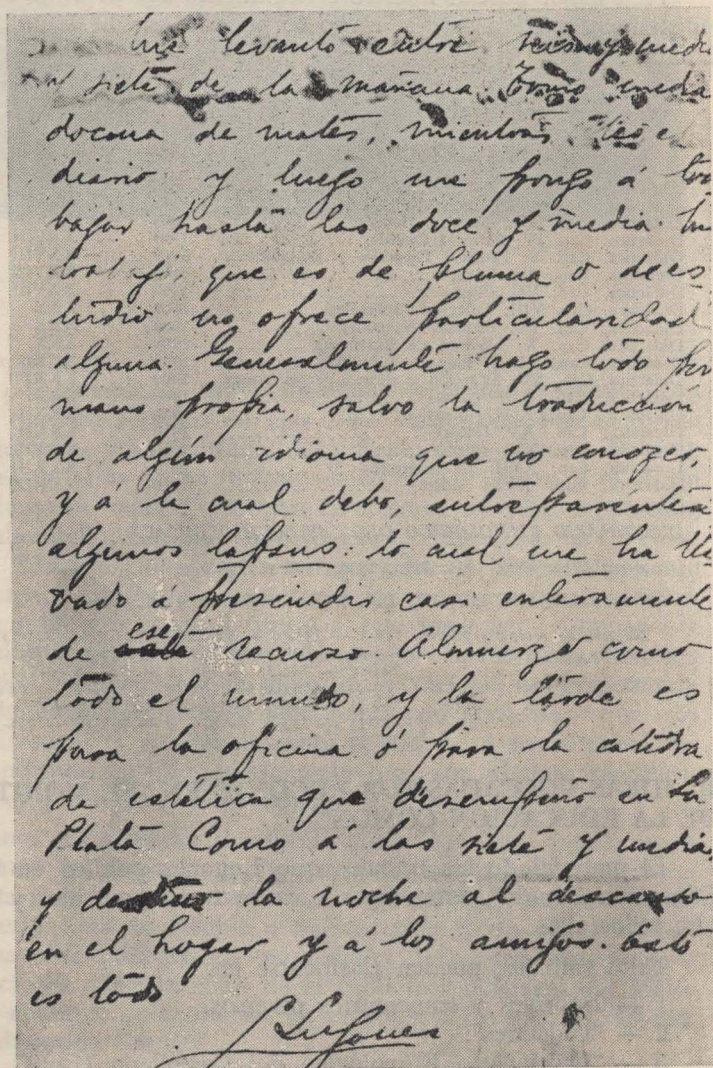 Me levanto entre seis y medi
y siete de la mañana. Tomo media
docena de mates, mientras leo e
diario y luego me pongo á tra
bajar hasta las doce y media. 
trabajo, que es de pluma o de es-
tudio no ofrece particularidad
alguna. Generalmente hago todo por
mano propia, salvo la traducción
de algún idioma que no conozco,
y á la cual debo, entre paréntesis
algunos lapsus: lo cual me ha lle
vado á prescindir casi enteramente
de ese recurso. Almuerzo como
todo el mundo, y la tarde es
para la oficina ó para la cátedra
de estética que desempeño en La
Plata. Como á las siete y media,
y destino la noche al descanso
en el hogar y á los amigos. Esto
es todo
L Lugones